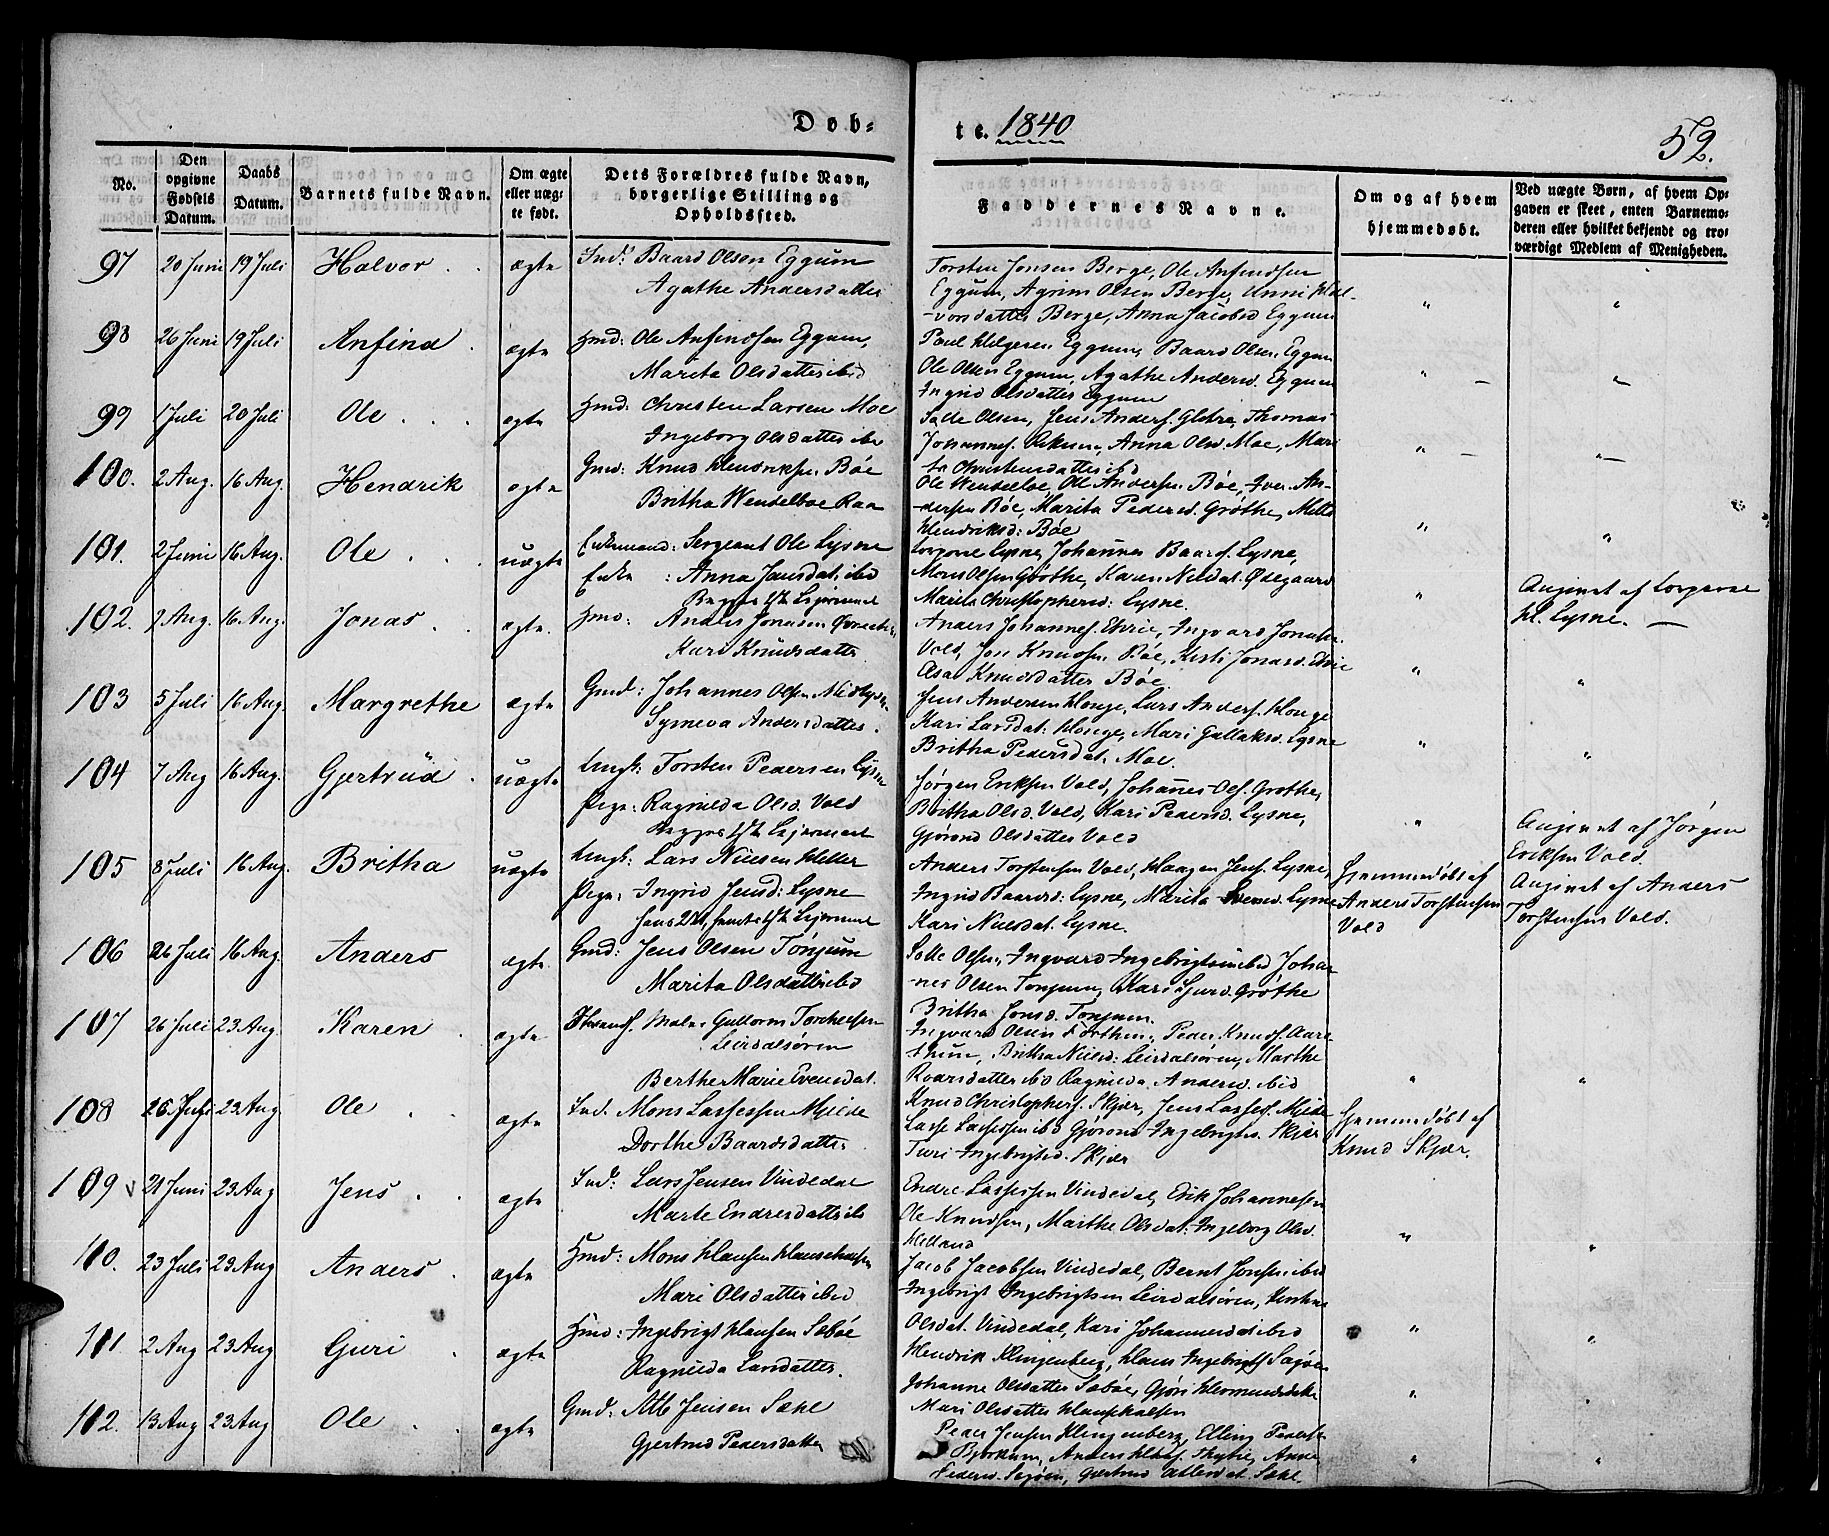 Døb-
te. 1840
52.
No.
Den opgivne Fødsels Datum.
Daabs Datum.
Barnets fulde Navn.
Om ægte eller uægte født.
Dets Forældres fulde Navn, borgerlige Stilling og Opholdssted.
Faddernes Navne.
Om og af hvem hjemmedøbt.
Ved uægte Børn, af hvem Opgaven er skeet, enten Barnemoderen eller hvilket bekjendt og troværdigt Medlem af Menigheden.
97 20 Juni 19 Juli Halvor ægte Ind: Baard Olsen Eggum
Agathe Andersdatter
Torsten Jonsen Berge, Ole Anfindsen
Eggum, Agrim Olsen Berge, Unni Hal-
-vorsdatter Berge, Anna Jacobsd Eggum
98 26 Juni 19 Juli Anfind ægte Hmd: Ole Anfindsen Eggum,
Marita Olsdatter ibid
Paul Helgesen Eggum, Baard Olsen Eggum
Ole Olsen Eggum, Agathe Andersd. Eggum
Ingrid Olsdatter Eggum
99 1 Juli 20 Juli Ole ægte Hmd: Christen Larsen Moe
Ingeborg Olsdatter ibid
Olsen, Jens Anders. Thomas
Johannes. Anna Olsd. Moe, Mari
ta Christensdatter ibid
100. 2 Aug. 16 Aug. Hendrik ægte Gmd: Knud Hendriksen Bøe
Britha Wendelboe Raa
Ole Wendelboe, Ole Andersen Bøe, Iver An-
-dersen Bøe, Marita Pedersd. Grøthe,
Hendriksd: Bøe
101. 2 Juni 16 Aug. Ole uægte Enkemand: Sergeant Ole Lysne
Enke: Anna Jensdat. ibid
Begges 1ste Leiermaal
Lysne, Johannes Baards. Lysne,
Mons Olsen Grøthe, Karen Nilsdat. Øiegaard
Marita Christophersd: Lysne.
Angivet af
Kl. Lysne.
102. 2 Aug. 16 Aug. Jonas ægte Hmd: Anders Jonasen
Kari Knudsdatter
Anders Johannes. Ingvard Jonas.
Vold, Jon Knudsen Bøe, Kirsti Jonasd.
Asa Knudsdatter Bøe
103 5 Juli 16 Aug. Margrethe ægte Gmd: Johannes Olsen
Synneva Andersdatter.
Jens Andersen Houge, Lars Anders. Houge
Kari Larsdat. Houge, Mari Gullaksd. Lysne
Britha Pedersdat. Moe.
104 7 Aug 16 Aug. Gjertrüd uægte Ungk: Torsten Pedersen Lysne
Pige: Ragnilda Olsd. Vold
Begges 1ste Leiermaal
Jørgen Eriksen Vold, Johannes Ols. Grøthe,
Britha Olsd. Vold, Kari Pedersd. Lysne,
Gjørond Olsdatter Vold
Angivet af Jørgen
Eriksen Vold.
105 8 Juli 16 Aug. Britha uægte Ungk: Lars Nielsen Heller
Pige: Ingrid Jensd: Lysne
hans 2det, hendes 1ste Leiermaal
Anders Torstensen Vold, Haagen Jens. Lysne,
Ingrid Baardsd: Lysne, Marita Lysne
Kari Nielsdat. Lysne.
Hjemmedøbt af
Anders Torstensen
Vold
Angivet af Anders
Torstensen Vold.
106 26 Juli 16 Aug. Anders ægte Gmd: Jens Olsen Tønjum
Marita Olsdatter ibid
Olsen, Ingvard Ingebrigtsen ibid Johan-
-nes Olsen Tonjum, Kari Sjurd. Grøthe
Britha Jonsd. Tonjum.
107 26 Juli 23 Aug. Karen ægte Guttorm Torchelsen
Leirdalsøren
Berthe Marie Evensdat.
Ingvard Olsen Peder Knuds. Aare
thun, Britha Nielsd: Leirdalsøren, Marthe
Roarsdatter ibid Ragnilda Andersd. ibid
108 26 Juli 23 Aug Ole ægte Ind. Mons Lassessen Mjelde
Dorthe Baardsdatter
Knud Christophers. Skjær, Jens Lasses. Mjelde
Lasse Lassessen ibid Gjørond Ingebrigtsd. Skjær
Turi Ingebrigtsd. Skjær
Hjemmedøbt af
Knud Skjær.
109 21 Juni 23 Aug Jens ægte Ind: Lars Jensen Vindedal
Marte Endresdatter ib
Endre Lassessen Vindedal, Erik Johannesen
Ole Knudsen, Marthe Olsdat. Ingeborg Olsd.
Helland
110. 23 Juli 23 Aug Anders ægte Hmd: Mons Hansen
Mari Olsdatter ibid
Jacob Jacobsen Vindedal, Bernt Jonsen ibid
Ingebrigt Ingebrigtsen Leirdalsøren,
Olsdat. Vindedal, Kari Johannesd ibid
111 2 Aug 23 Aug Guri ægte Hmd: Ingebrigt Hansen Sæbøe
Ragnilda Larsdatter.
Hendrik Klingenberg, Hans Ingebrigts.
Johanne Olsdatter Sæbøe, Gjøri
Mari Olsdatter
112. 13 Aug 23 Aug Ole ægte Gmd: Atle Jensen Sæhl
Gjertrud Pedersdatter
Peder Jensen Klingenberg, Elling
Anders Anne
Pedersd. Gjertrud Atlesdat. Sæhl.